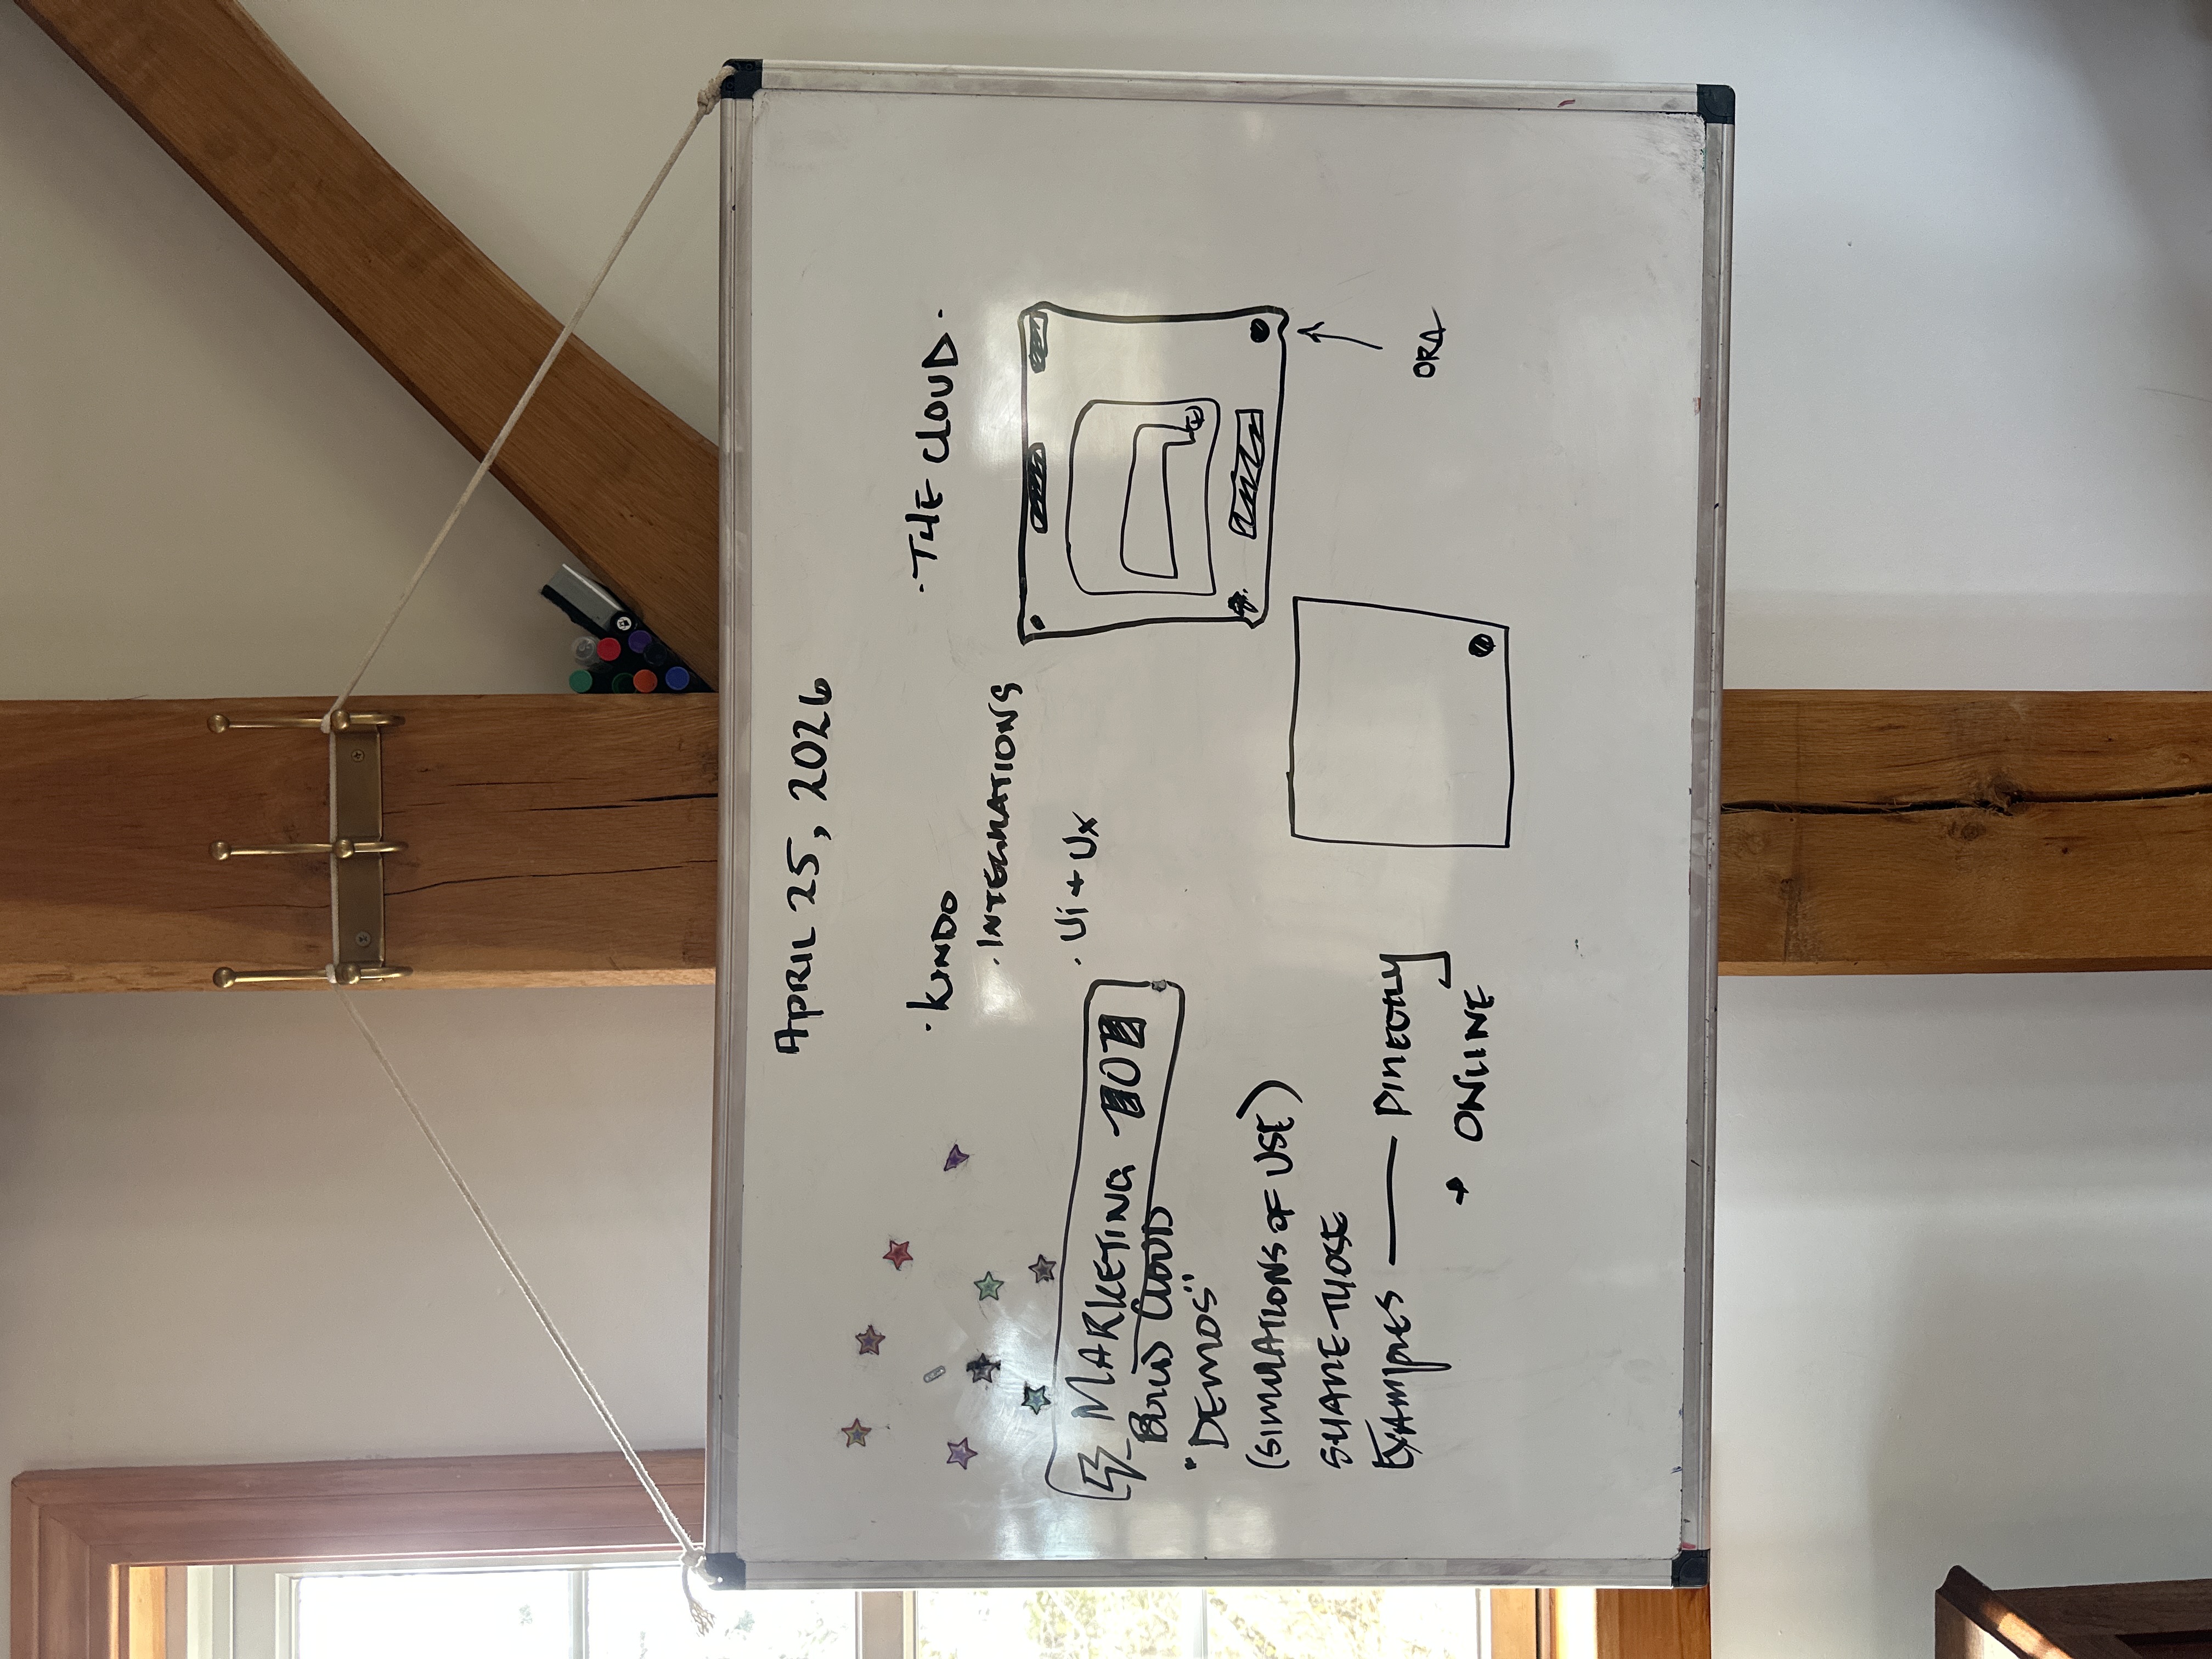 APRIL 25, 2026
· KINDO
· THE CLOUD ·
· INTEGRATIONS
· Ui + Ux
MARKETING
"DEMOS"
(SIMULATIONS OF USE)
SHARE THOSE
EXAMPLES — DIRECTLY
+ ONLINE
ORA